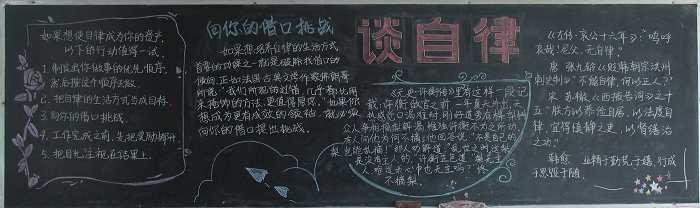 谈自律
如果想使自律成为你的资产
以下的行动值得一试。
1. 制定出你做事的优先顺序,
然后按这个顺序去做。
2. 把自律的生活方式当成目标。
3. 向你的借口挑战。
4. 工作完成之前,先把奖励挪开。
5. 把目光注视在结果上。
向你的借口挑战
如果想培养自律的生活方式,
首要的功课之一就是破除找借口的
倾向。正如法国古典文学作家佛朗哥
所说:“我们所犯的过错,几乎都比用
来掩饰的方法,更值得原谅。”如果你
想成为更有成效的领袖,就必须
向你的借口提出挑战。
《元史·许衡传》里有这样一段记
载:许衡做官之前,一年夏天外出,天
热感觉口渴难耐,刚好道旁有棵梨树,
众人争相摘梨解渴,惟独许衡不为之所动。
有人问他为何不摘?他回答说:“不是自己的
梨,岂能乱摘!”那人劝解道:“乱世之时,这梨
是没有主人的。”许衡正色道:“梨无主
人,难道我心中也无主吗?”终
不摘梨。
《左传·哀公十六年》:“呜呼
哀哉!尼父,无自律。”
唐 张九龄《贬韩朝宗洪州
刺史制》:“不能自律,何以正人?”
宋 苏辙《西掖告词》之十
五:“朕方以恭俭自居,以法度自
律,宜得慎静之吏,以督缮治
之功。”
韩愈 业精于勤荒于嬉,行成
于思毁于随。